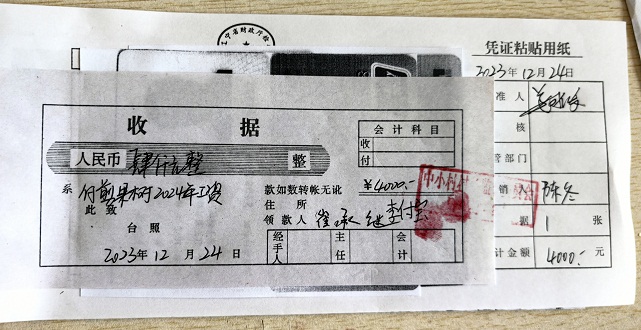 辽宁省财政厅
凭证粘贴用纸
2023年12月24日
准人
核
管部门
销人 陈冬
据 1 张
计金额 4000.- 元
收据
会计科目
收
付
人民币 肆仟元整 整
¥4000.-
系 付剪果树2024年工资
款如数转帐无讹
此致
住所
台照
领款人 崔承继 李付宝
2023年12月24日
经手人
主任
会计